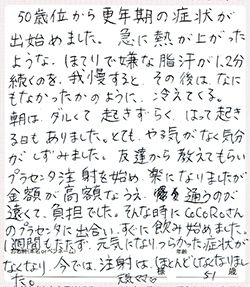 50歳位から更年期の症状が
出始めました。急に熱が上がった
ような、ほてりで嫌な脂汗が1、2分
続くのを、我慢すると、その後は、なに
もなかったかのように、冷えてくる。
朝は、ダルくて起きずらく、はって起き
る日もありました。とても、やる気がなく気分
がしずみました。友達から教えてもらい
プラセンタ注射を始め、楽になりましたが
金額が高額なうえ、通うのが
遠くて、負担でした。そんな時にCoCoRoさん
のプラセンタに出合い、すぐに飲み始めました。
1週間もたたず、元気になりつらかった症状が
なくなり、今では、注射は、ほとんどしなくなりまし
た。 元気です 様 51歳